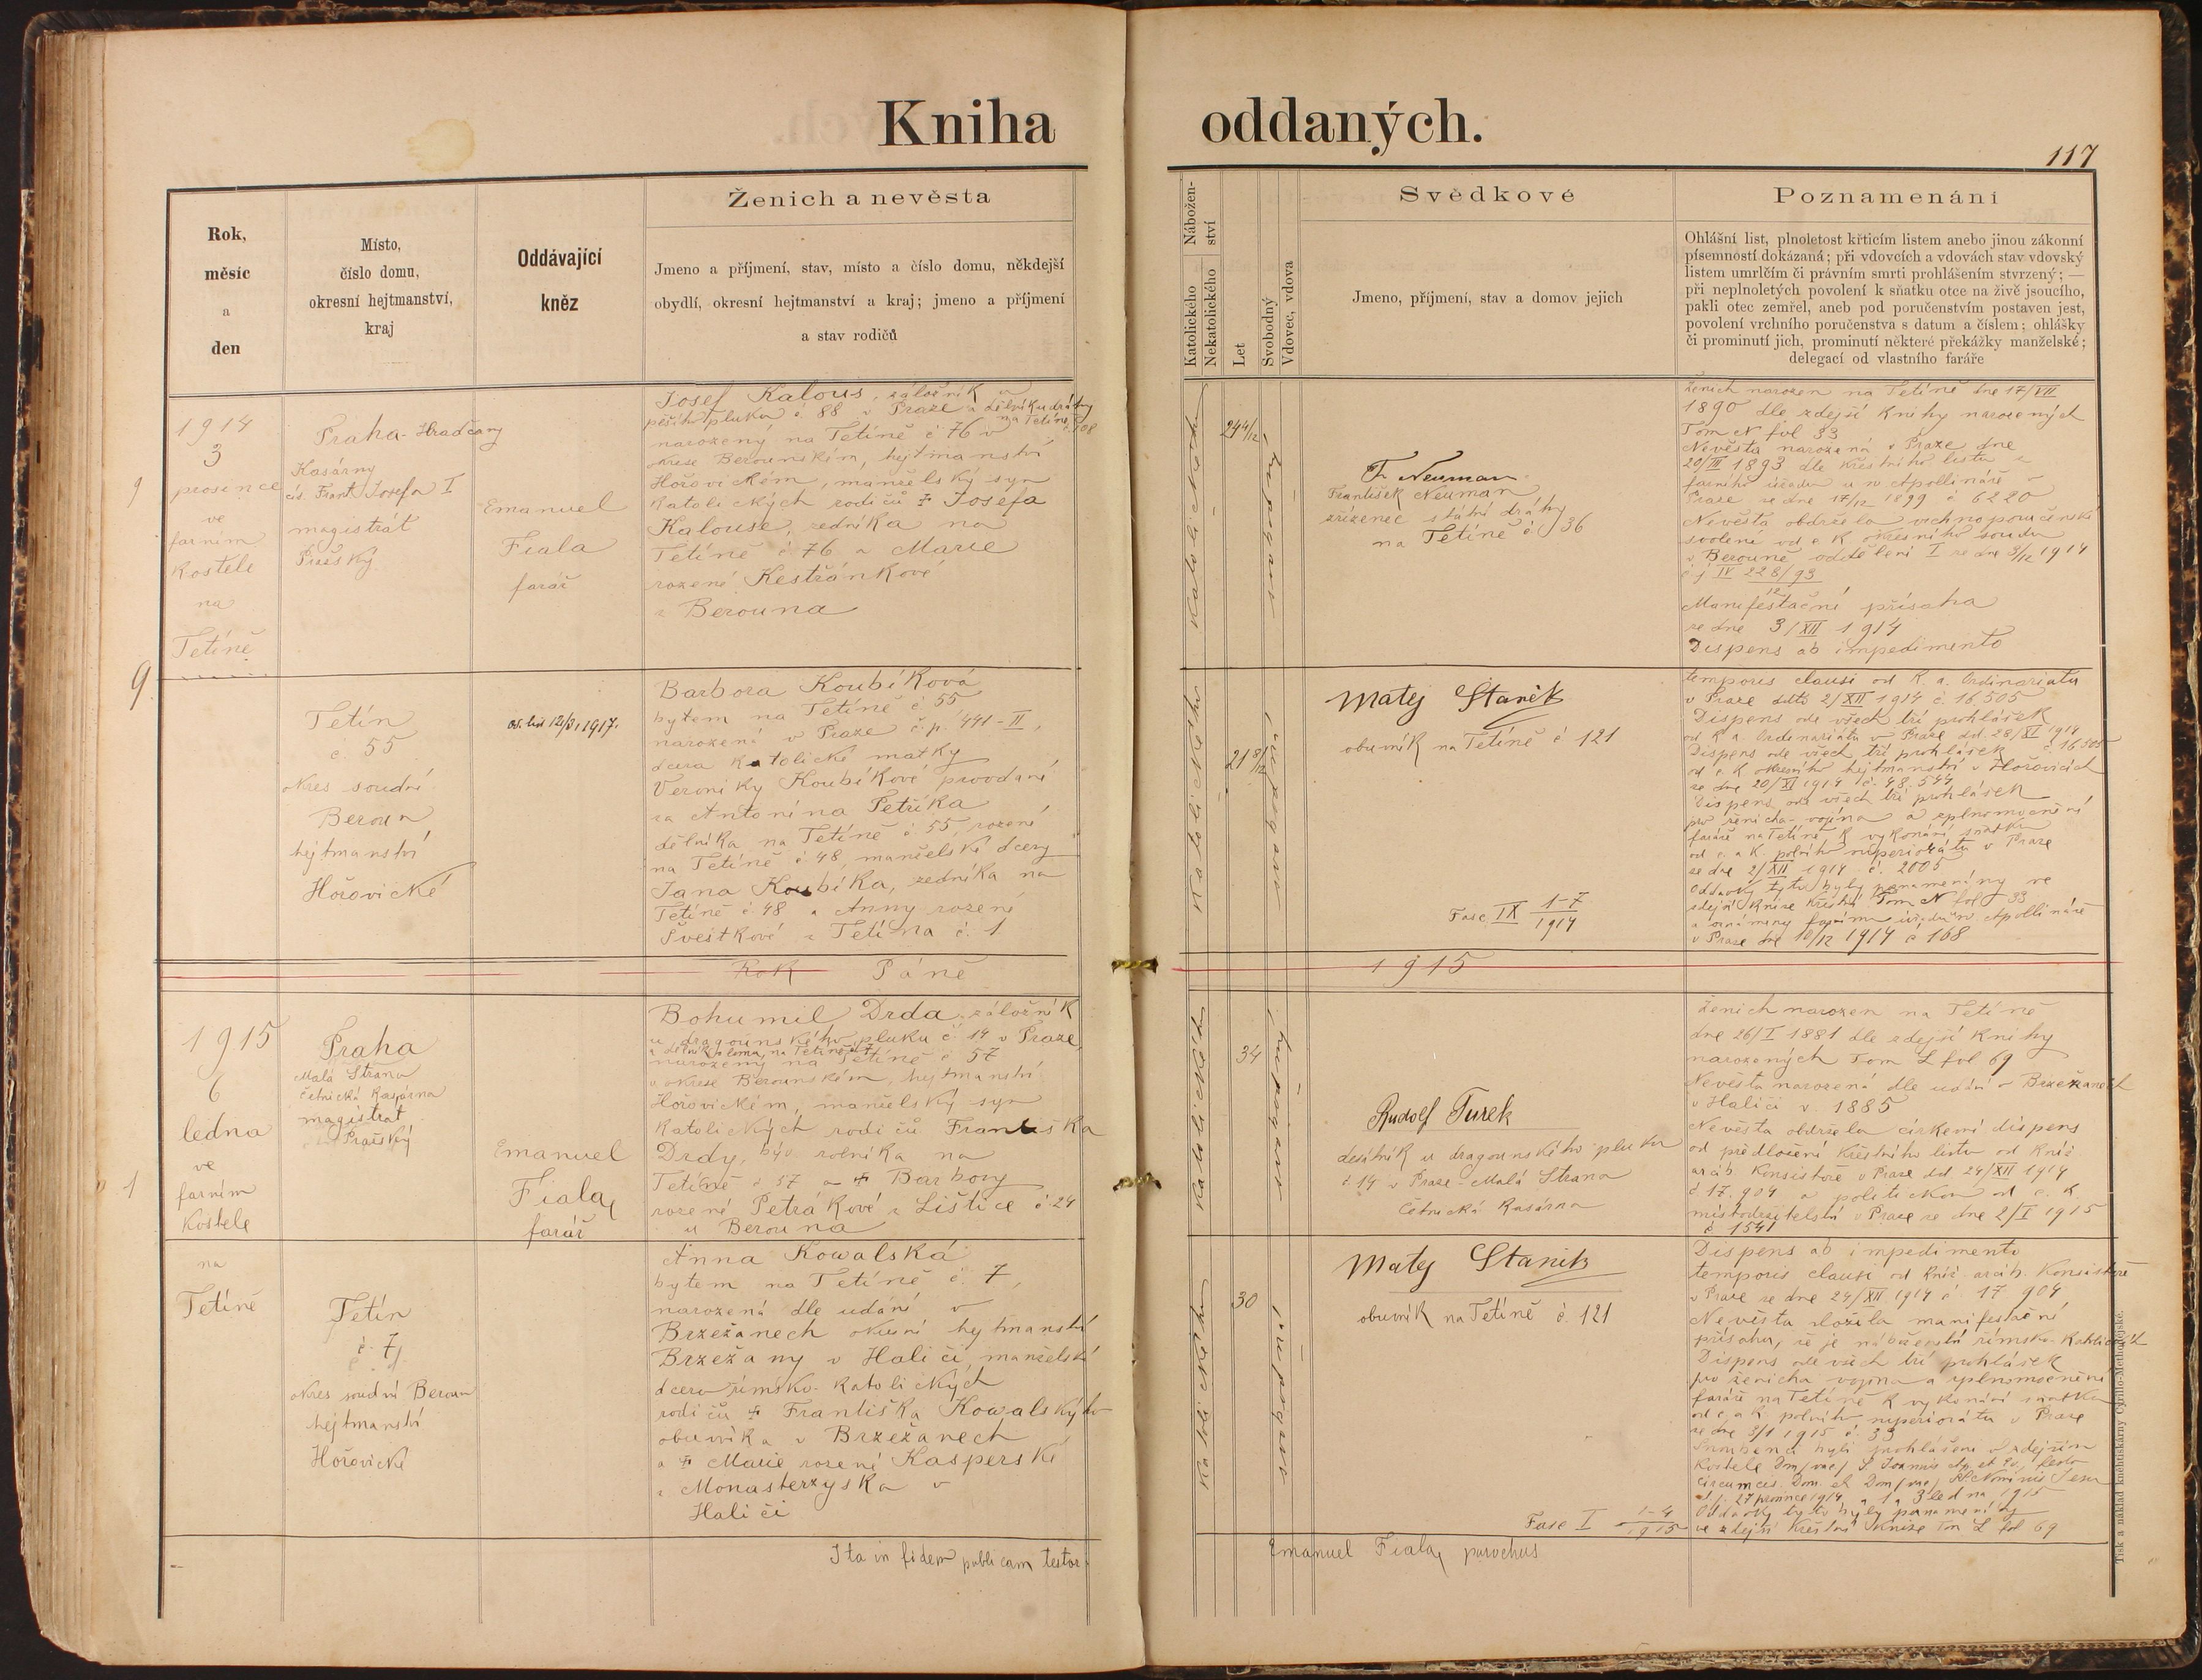 Kniha oddaných.
117
Rok,
měsíc
a
den
Místo,
číslo domu,
okresní hejtmanství,
kraj
Oddávající
kněz
Ženich a nevěsta
Jmeno a příjmení, stav, místo a číslo domu, někdejší
obydlí, okresní hejtmanství a kraj; jmeno a příjmení
a stav rodičů
Nábožen-
ství
Katolického
Nekatolického
Let
Svobodný
Vdovec, vdova
Svědkové
Jmeno, příjmení, stav a domov jejich
Poznamenání
Ohlášní list, plnoletost křticím listem anebo jinou zákonní
písemností dokázaná; při vdovcích a vdovách stav vdovský
listem umrlčím či právním smrti prohlášením stvrzený; —
při neplnoletých povolení k sňatku otce na živě jsoucího,
pakli otec zemřel, aneb pod poručenstvím postaven jest,
povolení vrchního poručenstva s datum a číslem; ohlášky
či prominutí jich, prominutí některé překážky manželské;
delegací od vlastního faráře
9
1914
3
prosince
ve
farním
Kostele
na
Tetíně
Praha-Hradčany
Kasárny
cís. Frant. Josefa I
magistrát
Pražský
Emanuel
Fiala
farář
Josef Kalous, záložník u
pěšího pluku č 88 v Praze a dělník u dráhy
na Tetíně č. 108
narozený na Tetíně č 76 v
okrese Berounském, hejtmanství
Hořovickém, manželský syn
Katolických rodičů ✝ Josefa
Kalouse, zedníka na
Tetíně č 76 a Marie
rozené Kestřánkové
z Berouna
Katolického
24 4/12
svobodný
Fr. Neuman
František Neuman
zřízenec státní dráhy
na Tetíně č 36
Ženich narozen na Tetíně dne 17/VII
1890 dle zdejší Knihy narozených
Tom N fol 33
Nevěsta narozená v Praze dne
20/III 1893 dle Křestního listu z
farního úřadu u sv Apollináře v
Praze ze dne 17/12 1899 č 6220
Nevěsta obdržela vrchnoporučenské
svolení od c. K. okresního soudu
v Berouně oddělení I ze dne 3/12 1914
č j IV 228/93
12
Manifestační přísaha
ze dne 3/XII 1914
Dispens ab impedimento
9.
Tetín
č. 55
okres soudní
Beroun
hejtmanství
Hořovické
1917.
Barbora Koubíková
bytem na Tetíně č 55
narozená v Praze č.p. 441-II,
dcera Katolické matky
Veroniky Koubíkové provdané
za Antonína Petříka
dělníka na Tetíně č 55, rozené
na Tetíně č 48, manželské dcery
Jana Koubíka, zedníka na
Tetíně č 48 a Anny rozené
Švestkové z Tetína č. 1
Katolického
21 8/12
svobodná
Matej Staněk
obuvník na Tetíně č 121
Fasc. IX 1-7
1914
temporis clausi od K. a. Ordinariátu
v Praze ddto 2/XII 1914 č. 16,505
Dispens ode všech tří prohlášek
od K a Ordinariátu v Praze dd. 28/XI 1914
č. 16.303
Dispens ode všech tří prohlášek
od c. K okresního hejtmanství v Hořovicích
ze dne 20/XI 1914 č. 48.544
Dispens ode všech tří prohlášek
pro ženicha-vojína a zplnomocnění
faráře na Tetíně K vykonání sňatku
od c. a K. polního superiorátu v Praze
ze dne 2/XII 1914 č. 2005
Oddavky tyto byly poznamenány ve
zdejší Knize Křestní Tom N fol 33
a oznámeny farnímu úřadu sv. Apollináře
v Praze dne 10/12 1914 č 168
Rok Páně 1915
1
1915
6
ledna
ve
farním
Kostele
na
Tetíně
Praha
Malá Strana
Četnická Kasárna
magistrat
Pražský
Emanuel
Fiala,
farář
Bohumil Drda, záložník
u dragounského pluku č 14 v Praze,
a dělník z lomu na Tetíně č 7
narozený na Tetíně č 57
v okrese Berounském, hejtmanství
Hořovickém, manželský syn
Katolických rodičů Františka
Drdy, býv. rolníka na
Tetíně č 57 a ✝ Barbory
rozené Petrákové z Lištice č 24
u Berouna
Katolického
34
svobodný
Rudolf Turek
desátník u dragounského pluku
č 14 v Praze-Malá Strana
Četnická Kasárna
Ženich narozen na Tetíně
dne 26/I 1881 dle zdejší Knihy
narozených Tom L fol 69
Nevěsta narozená dle udání v Brzežanech
v Haliči v. 1885
Nevěsta obdržela církevní dispens
od předložení Křestního listu od Kníž.
arcib. Konsistoře v Praze dd 24/XII 1914
č 17.904 a politickou od c. K.
místodržitelství v Praze ze dne 2/I 1915
č 1541
Tetín
č. 7
okres soudní Beroun
hejtmanství
Hořovické
Anna Kowalská
bytem na Tetíně č. 7,
narozená dle udání v
Brzežanech okresní hejtmanství
Brzežany v Haliči, manželská
dcera římsko-Katolických
rodičů ✝ Františka Kowalského
obuvníka v Brzežanech
a ✝ Marie rozené Kasperské
z Monasterzyska v
Haliči
Katolického
30
svobodná
Matej Staněk
obuvník na Tetíně č 121
Fasc I 1-4
1915
Dispens ab impedimento
temporis clausi od Kníž. arcib. Konsistoře
v Praze ze dne 24/XII 1914 č. 17.904
Nevěsta složila manifestační
přísahu, že je náboženství římsko-Katolického
Dispens ode všech tří prohlášek
pro ženicha vojína a zplnomocnění
faráře na Tetíně K vykonání sňatku
od c. a K. polního superiorátu v Praze
ze dne 5/1 1915 č. 33
Snoubenci byli prohlášeni v zdejším
Kostele Dom. vac. S. Joannis Ap. et Ev., festo
circumcis. Dom. et Dom. vac. SS. Nominis Jesu
t. j. 27 prosince 1914 a 1 a 3 ledna 1915
Oddavky tyto byly poznamenány
ve zdejší Křestní Knize Tom L fol 69
Ita in fidem publicam testor:
Emanuel Fiala, parochus
Tisk a náklad knihtiskárny Cyrillo-Methodějské.